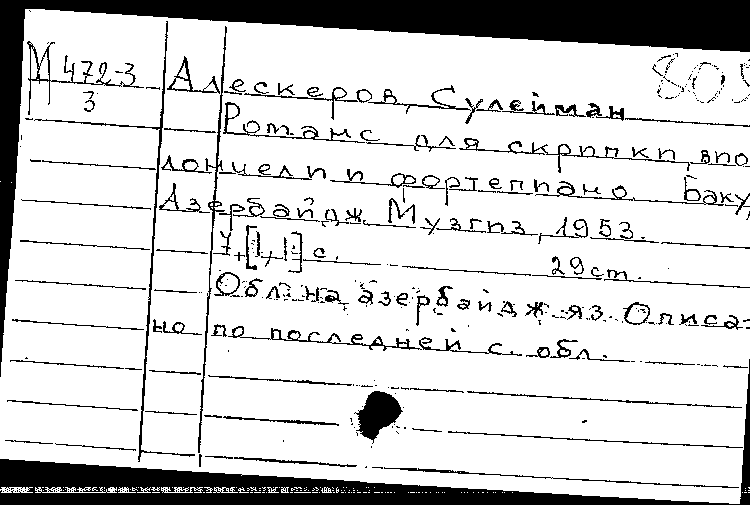 М 472-3
3
805
Алескеров, Сулейман
Романс для скрипки, вио
лончели и фортепиано. Баку,
Азербайдж. Музгиз, 1953.
7, [1, 1] с. 29cm.
Обл. на азербайдж. яз. Описа-
но по последней с. обл.